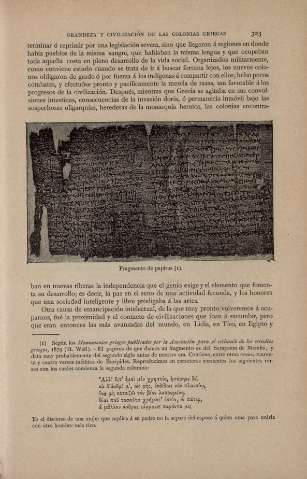 GRANDEZA Y CIVILIZACIÓN DE LAS COLONIAS GRIEGAS 323
terminar ó reprimir por una legislación severa, sino que llegaron á regiones en donde
había pueblos de la misma sangre, que hablaban la misma lengua y que ocupaban
toda aquella costa en pleno desarrollo de la vida social. Organizados militarmente,
como conviene estarlo cuando se trata de ir á buscar fortuna lejos, los nuevos colo-
nos obligaron de grado ó por fuerza á los indígenas á compartir con ellos; hubo pocos
combates, y efectuóse pronto y pacíficamente la mezcla de razas, tan favorable á los
progresos de la civilización. Después, mientras que Grecia se agitaba en sus convul-
siones intestinas, consecuencias de la invasión doria, ó permanecía inmóvil bajo las
sospechosas oligarquías, herederas de la monarquía heroica, los colonias encontra-
Fragmento de papirus (1).
ban en nuevas riberas la independencia que el genio exige y el elemento que fomen-
ta su desarrollo; es decir, la paz en el seno de una actividad fecunda, y los honores
que una sociedad inteligente y libre prodigaba á las artes.
Otra causa de emancipación intelectual, de la que muy pronto volveremos á ocu-
parnos, fué la proximidad y el contacto de civilizaciones que iban á extinguirse, pero
que eran entonces las más avanzadas del mundo, en Lidia, en Tiro, en Egipto y
(1) Según los Monumentos griegos publicados por la Asociación para el estímulo de los estudios
griegos, 1879 (H. Weil). – El papirus de que damos un fragmento es del Serapeum de Memfis, y
data muy probablemente del segundo siglo antes de nuestra era. Contiene, entre otras cosas, cuaren-
ta y cuatro versos inéditos de Eurípides. Reproducimos en caracteres corrientes los siguientes ver-
sos con los cuales comienza la segunda columna:
Es el discurso de una mujer que suplica á su padre no la separe del esposo á quien ama para unirla
con otro hombre más rico.